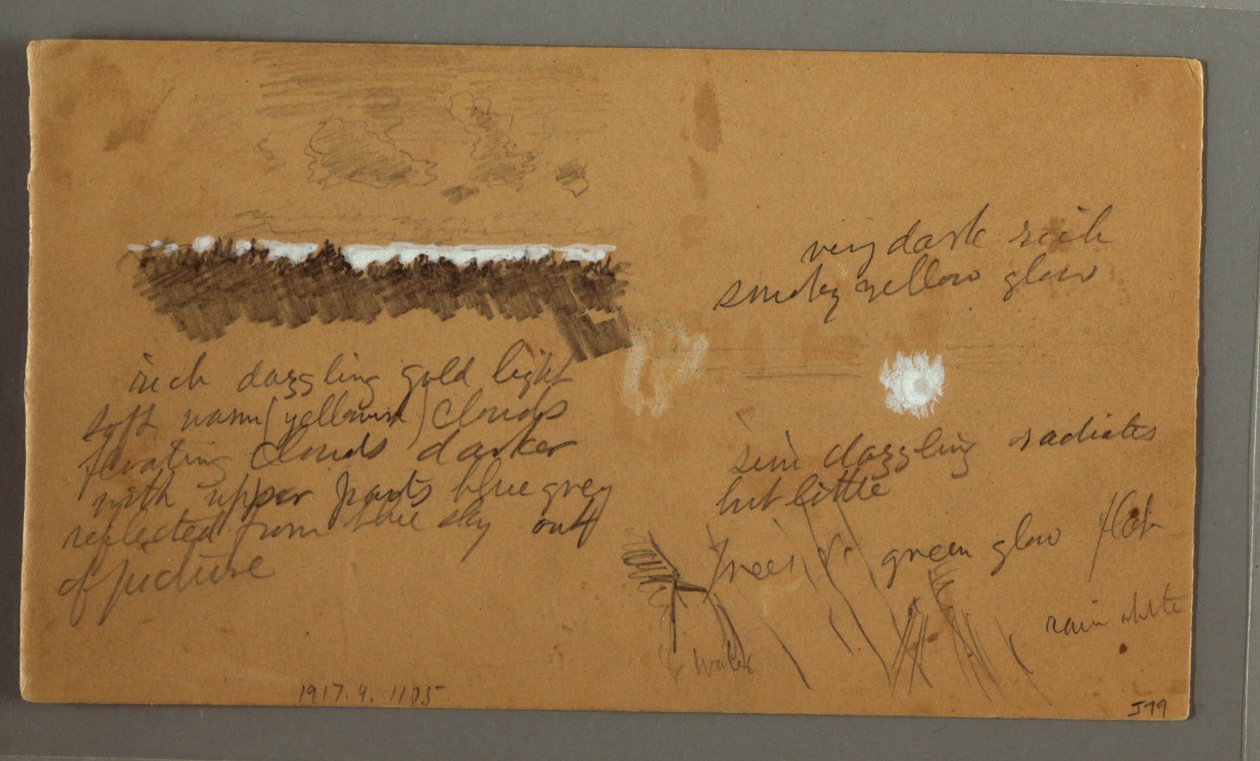 rich dazzling gold light
soft warm (yellowish) clouds
floating clouds darker
with upper parts blue grey
reflected from blue sky out
of picture
very dark rich
smoky yellow glow
sun dazzling radiates
but little
Trees green glow flat
rain white
water
1917.4.1105